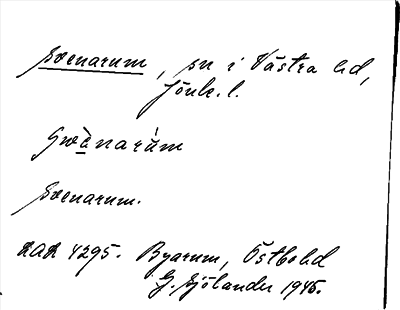 Svenarum, sn i Västra hd,
Jönk. l.
Svènaràm
Svenarum.
RAÄ 4295. Byarum, Östbo hd
G. Sjölander 1945.